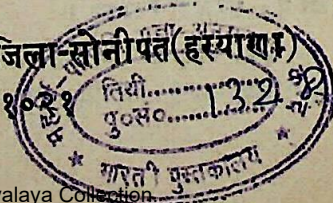 जिला-सोनीपत(हरयाणा)
१०२१
तिथी..............
पु०सं०...........132
भारती पुस्तकालय
valaya Collection